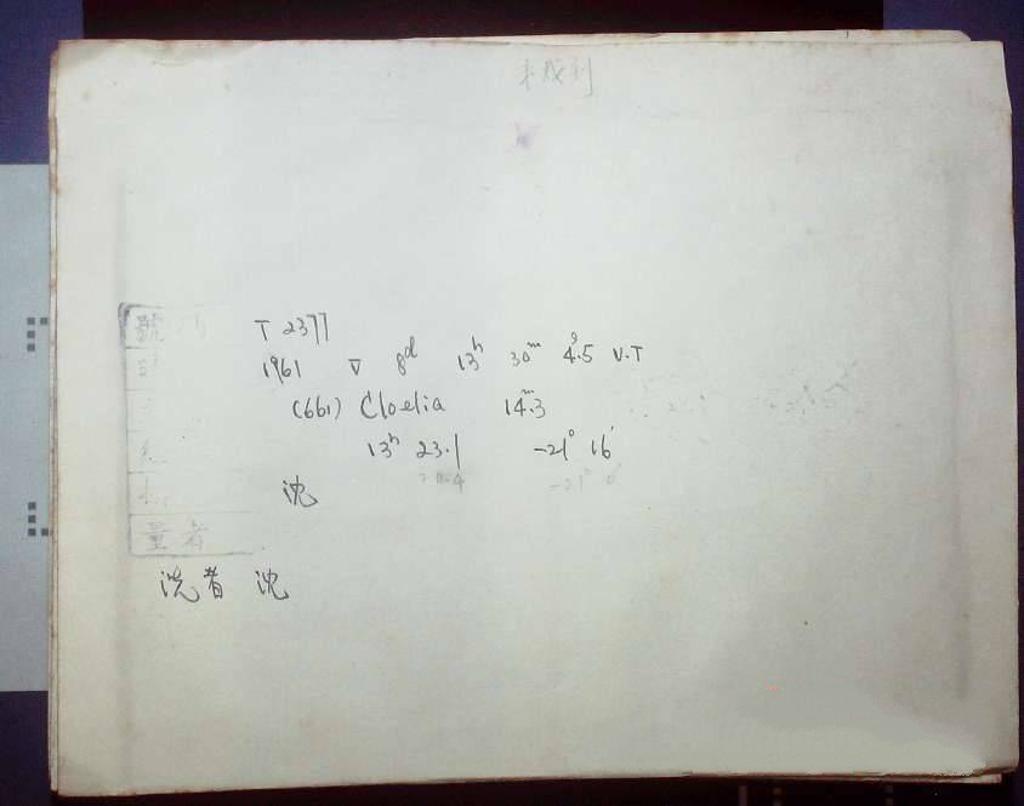 號
T 2377
1961 V 8d 13h 30m 4s.5 U.T
(661) Cloelia 14m.3
13h 23.1 -21° 16'
-21°
沈
量者
洗者 沈